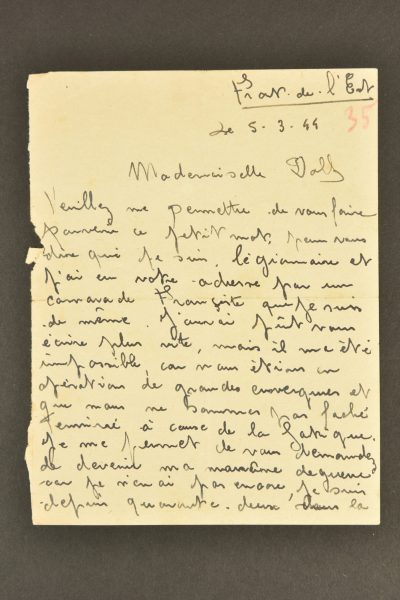 Front de l'Est
Le 5.3.44 35
Mademoiselle Dolly
Veuillez me permettre de vous faire
parvenir ce petit mot, pour vous
dire qui je suis, légionnaire et
j'ai eu votre adresse par un
camarade Françiste que je suis
de même. J'aurai pût vous
écrire plus vite, mais il m'a été
impossible, car nous étions en
opérations de grandes envergures et
que nous ne sommes pas faché
terminé à cause de la fatique.
Je me permet de vous demander
de devenir ma marraine de guerre
car je n'en ai pas encore, je suis
depuis quarante-deux dans la